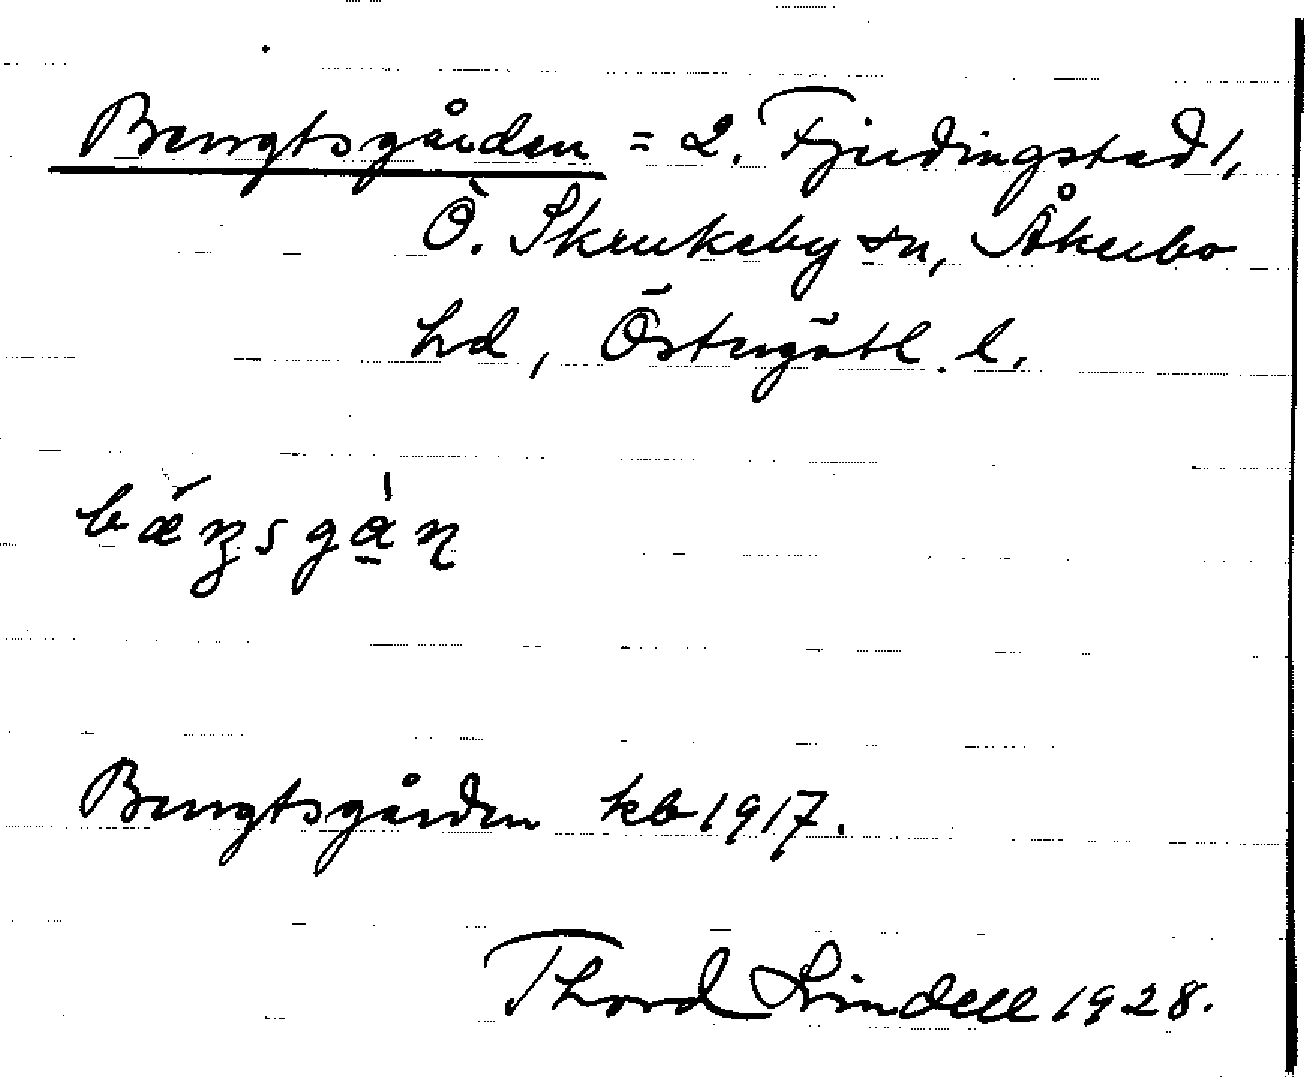 Bengtsgården = 2. Fjerdingstad 1,
Ö. Skrukeby sn, Åkerbo
hd, Östergötl. l.
Bengtsgården kb 1917.
Thord Lindell 1928.